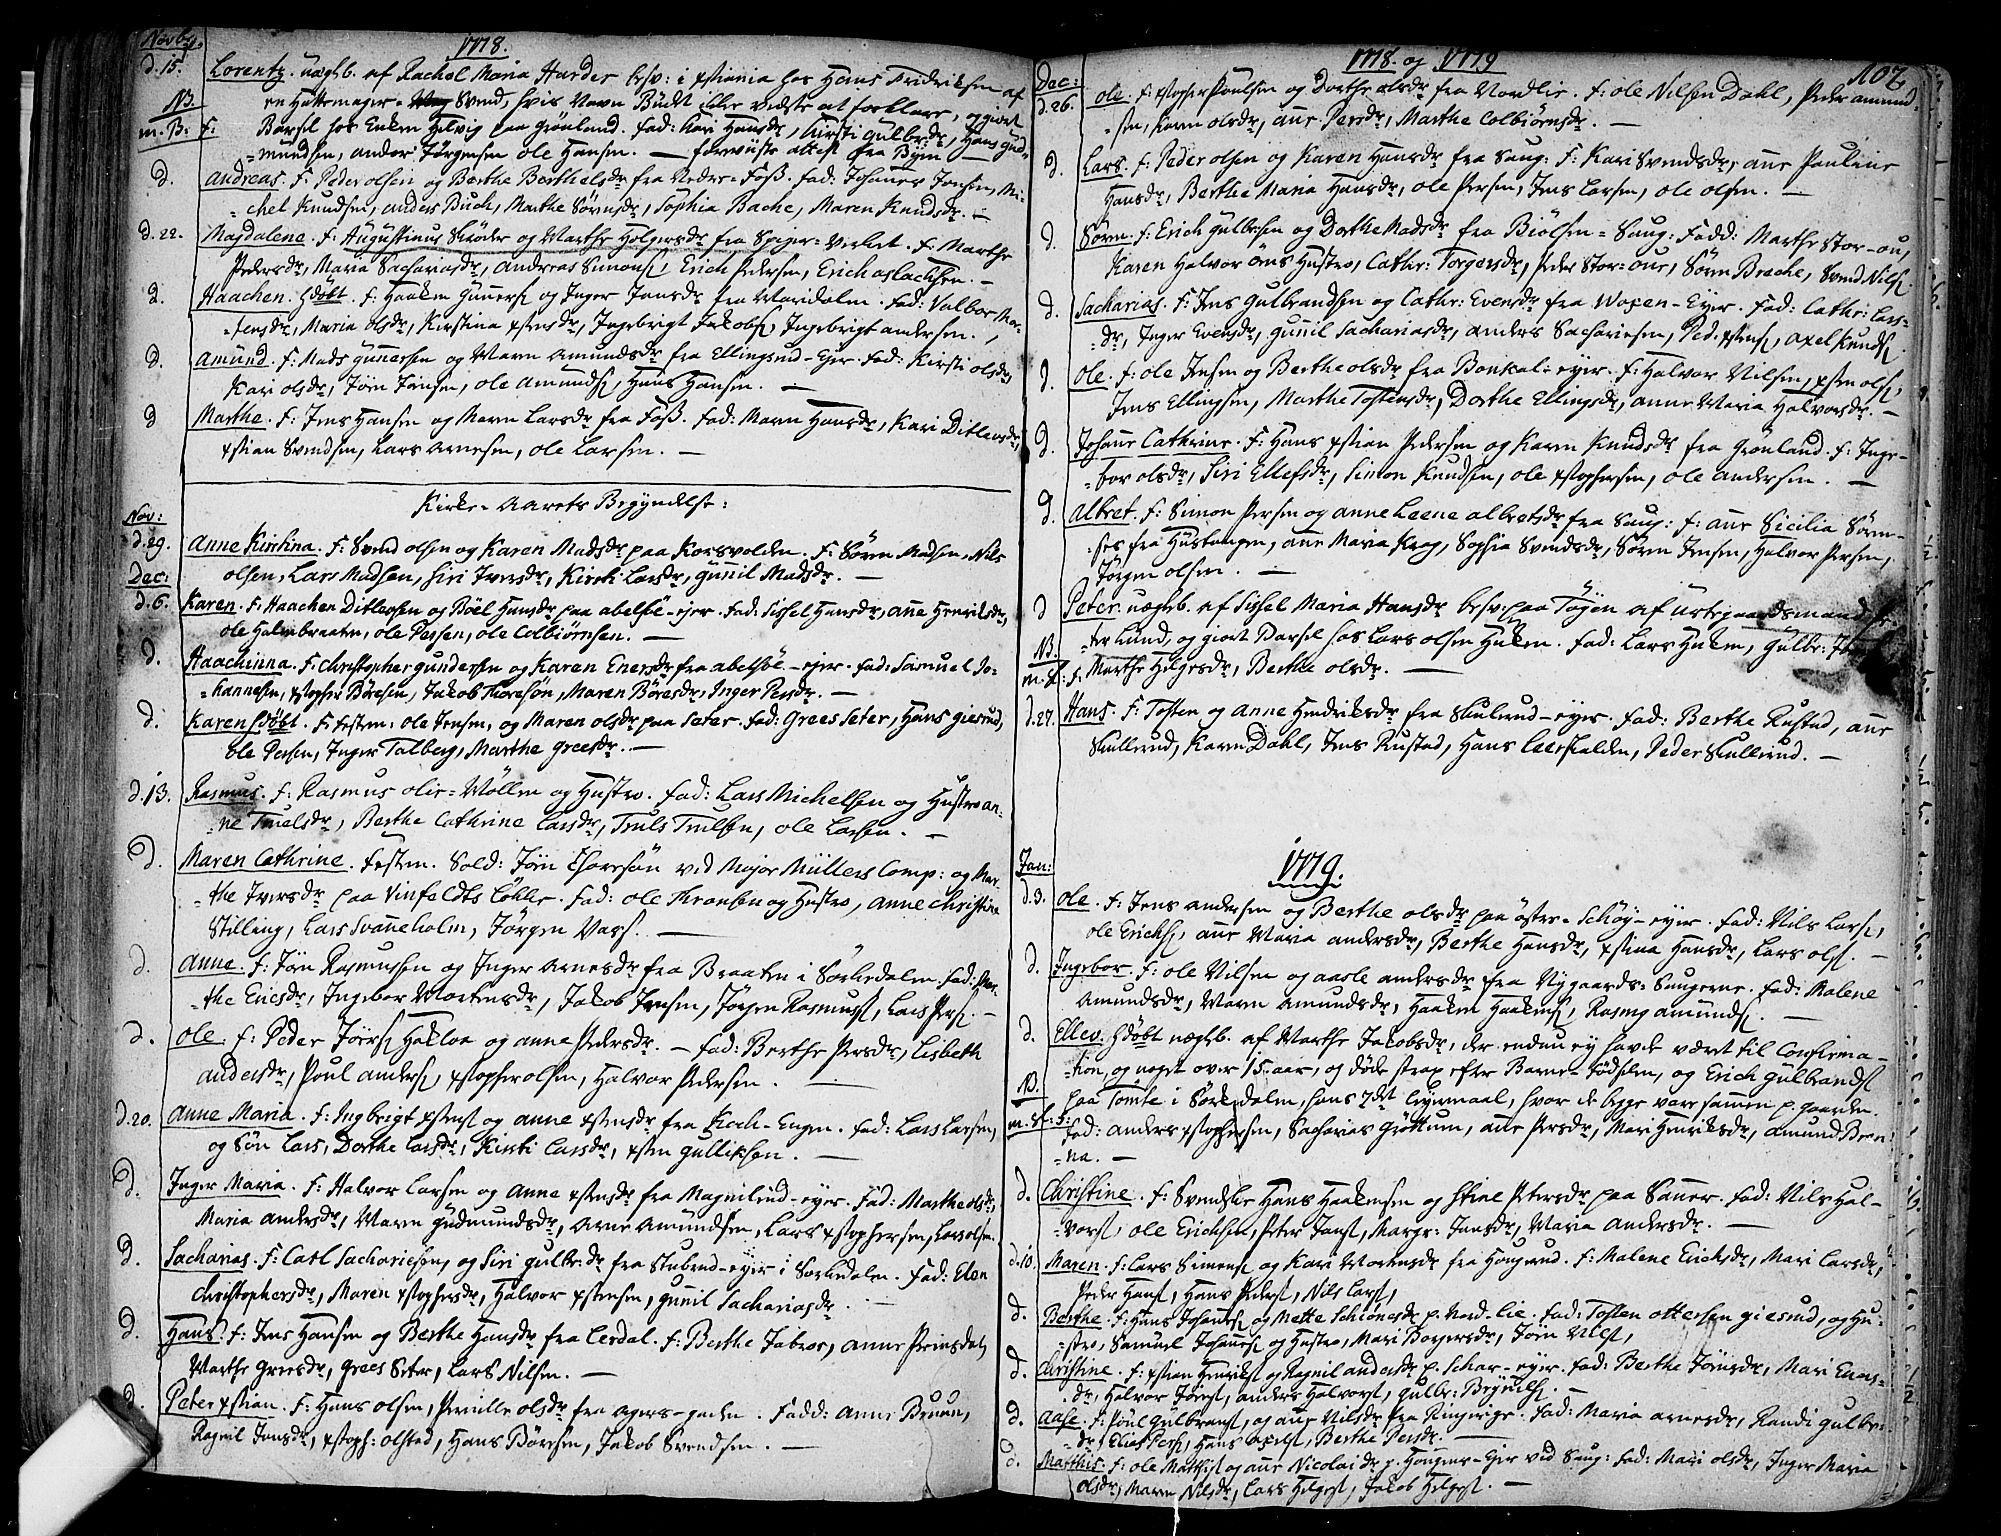 Novbr.
1778.
d. 15.
Lorentz. uægtb. af Rachel Maria Harder besv: i xstiania hos Hans Fridrichsen af
en Hattemager- Svend, hvis Navn Büdt eller vidste at forklare, og giort
NB.
m. B: F:
Barsel hos Enken Helvig paa Grønland. Fad: Kari Hansdr, Kirsti Gulbrdr, Hans Gud-
-mundsen, Ander Jørgensen ole Hansen. — forreviiste attest fra Byen —
d.
Andreas. F: Peder olsen og Berthe Berthelsdr fra Nedre-Foss. Fad: Johannes Jensen, Mi-
-chel Knudsen, Anders Buch, Marthe Sørensdr, Sophia Bache, Maren Knudsdr. —
d. 22.
Magdalene. F: Augustinus Skrøder og Marthe Holgersdr fra Spiger-Verket. F: Marthe
Pedersdr, Maria Sachariasdr, Andreas Simons, Erich Pedersen, Erich aslachsen. —
d.
Haachen. hdøbt. F: Haaken Gunners og Inger Jansdr fra Maridalen. Fad: Valbor Mor-
-tensdr, Maria olsdr, Kirstina xstensdr, Ingebrigt Jakobs, Ingebrigt andersen.
d.
Amund. F: Mads Gunnersen og Maren Amundsdr fra Ellingsrud-Eyer. Fad: Kirsti olsdr,
Kari olsdr, Jørn Jensen, ole Amunds, Hans Hansen. —
d
Marthe. F: Jens Hansen og Maren Larsdr fra Foss. Fad: Maren Hansdr, Kari Ditlevsdr,
xstian Svendsen, Lars Arnesen, ole Larsen. —
Kirke-Aarets Begyndelse:
Nov:
d. 29.
Anne Kirstina. F: Svend olsen og Karen Madsdr paa Korsvolden. F: Sören Madsen, Nils
olsen, Lars Madsen, Siri Iversdr, Kirsti Larsdr, Gunnil Madsdr. —
Dec:
d. 6.
Karen. F: Haachen Ditlevsen og Böel Hansdr paa abelsöe-ejer. Fad: Sissel Hansdr, anne Henriksdr,
ole Holmbraaten, ole Persen, ole Colbiørnsen. —
d.
Haachinna. F: Christopher Gundersen og Karen Enersdr fra abelsöe-ejer. Fad: Samuel Jo-
-hannesen, xstopher Böresen, Jakob Thoresøn, Maren Böresdr, Inger Persdr. —
d.
Karen hdøbt. F. festem: ole Jensen, og Maren olsdr paa Seter. Fad: Grees Seter, Hans giesrud,
ole Persen, Inger Talberg, Marthe Greesdr. —
d. 13.
Rasmus. F: Rasmus olie-Møllen og Hustro. Fad: Lars Michelsen og Hustro an-
-ne Truelsdr, Berthe Cathrine Larsdr, Truls Trulsen, ole Larsen. —
d.
Maren Cathrine. Festm. Sold: Jørn Thoresøn ved Major Müllers Comp: og Mar-
-the Iversdr paa Vinfeldts Løkke. Fad: ole Thronsen og Hustro, Anne Christine
Stilling, Lars Svaneholm, Jörgen Vass. —
d.
Anne. F: Jørn Rasmussen og Inger Arnesdr fra Braaten i Sørkedalen. Fad: Mar-
-the Ericsdr, Ingebor Mortensdr, Jakob Jensen, Jörgen Rasmuss, Lars Pers. —
d.
ole. F: Peder Jörs Hakloa og Anne Pedersdr. — Fad: Berthe Persdr, Lisbeth
andersdr, Poul anders, xstopher olsen, Halvor Pedersen. —
d. 20.
Anne Maria. F: Ingbrigt xstens og Anne xstensdr fra Koch-Engen. Fad: Lars Larsen,
og Søn Lars, Dorthe Larsdr, Kirsti Larsdr, xsten Gulliksen. —
d.
Inger Maria. F: Halvor Larsen og Anne xstensdr fra Magnilrud-eyer. Fad: Marthe olsdr,
Maria andersdr, Maren Gudmundsdr, Arne Amundsen, Lars xstophersen, Lars olsen.
d.
Sacharias. F: Carl Sachariesen, og Siri Gulbr.dr fra Stubrud-eyer i Sørkedalen. Fad: Elen
Christophersdr, Maren xstophersdr, Halvor xstensen, Gunil Sachariasdr. —
d.
Hans. F: Jens Hansen og Berthe Hansdr fra Lerdal. F: Berthe Fabror, Anne Prinsdal,
Marthe Greesdr, Grees Seter, Lars Nilsen. —
d.
Peter xstian. F: Hans olsen, Pernille olsdr fra Agers-gaden. Fadd: Anne Bruun,
Ragnil Jansdr, xstoph: olstad, Hans Børesen, Jakob Svendsen. —
1778. og 1779
107.
Dec:
d. 26.
ole. F: xstopher Poulsen og Dorthe olsdr fra Nordlie. F: ole Nilsen Dahl, Peder Amund-
-sen, Karen olsdr, Anne Persdr, Marthe Colbiörnsdr. —
d.
Lars. F: Peder olsen og Karen Hansdr fra Saug: F: Kari Svendsdr, Anne Pauline
Hansdr, Berthe Maria Hansdr, ole Persen, Jens Larsen, ole olsen. —
d.
Sørn. F: Erich Gulbrsen og Dorthe Madsdr fra Biölsen-Saug: Fadd: Marthe Stor-ou,
Karen Halvor örns Hustro, Cathr: Torgersdr, Peder Stor-oue, Sørn Breche, Svend Nils
d.
Sacharias. F: Jens Gulbrandsen og Cathr: Evensdr fra Woxen-Eyer. Fad: Cathr: Lars-
-dr, Inger Evensdr, Gunnil Sachariasdr, Anders Sachariesen, Ped. xstens, Axel Knuds
d.
Ole. F: ole Jensen og Berthe olsdr fra Bonkal-eyer. F: Halvor Nilsen, xsten ols,
Jens Ellingsen, Marthe Tostensdr, Dorthe Ellingsdr, Anne Maria Halvorsdr. —
d.
Johanne Cathrine. F: Hans xstian Pedersen og Karen Knudsdr fra Grønland. F: Inge-
-bor olsdr, Siri Ellefsdr, Simon Knudsen, ole xstophersen, ole Andersen. —
d.
Albret. F: Simon Persen og Anne Leene albretsdr fra Saug: F: Anne Sicilia Sørn-
-ses fra Hustangen, Anne Maria Krog, Sophia Svendsdr, Sörn Jensen, Halvor Persen,
Jörgen olsen. —
d
Peter. uægtb. af Sissel Maria Hansdr besv: paa Töyen af urtegaardsmand Pe-
-ter Lund, og giort Barsel hos Lars olsen Huken. Fad: Lars Huken, Gulbr:
NB.
m. F: F:
Marthe Helgesdr, Berthe olsdr. —
d. 27.
Hans. F: Tosten og Anne Hendriksdr fra Skulerud-eyer. Fad: Berthe Rustad, Anne
Skullerud, Karen Dahl, Jens Rustad, Hans Leerskalden, Peder Skullerud. —
1779.
Jan:
d. 3.
ole. F: Jens Andersen og Berthe olsdr paa öster-Schöy-eyer. Fad: Nils Lars,
ole Erichs, Anne Maria andersdr, Berthe Hansdr, xstina Hansdr, Lars ols. —
d.
Ingebor. F: ole Nilsen og aasle andersdr fra Nygaards-Saugerne. Fad: Malene
Amundsdr, Maren Amundsdr, Haaken Haakens, Rasmus Amunds. —
d.
Ellev. hdøbt uægtb. af Marthe Jakobsdr, der endnu ey havde været til Confirma-
-tion, og noget over 15. aar, og døde strax efter Barne-Födselen, og Erich Gulbrands
NB.
paa Tomte i Sörkedalen, hans 7det Leyermaal, hvor de begge vare sammen p. gaarden.
m. F: F:
Fad: Anders xstophersen, Sacharias Gröttum, Anne Persdr, Mari Henriksdr, Amund Bren-
-na. —
d.
Christine. F: Svendske Hans Haakensen og Stine Petersdr paa Sanner. Fad: Nils Hal-
-vors, ole Erichsen, Peter Jans, Margr: Jansdr, Maria Andersdr. —
d. 10.
Maren. F: Lars Simens og Kari Mortensdr fra Hougerud. F: Malene Erichsdr, Mari Larsdr,
Peder Hans, Hans Peders, Nils Lars,
d.
Berthe. F: Hans Johannes og Mette Schiönesdr p. Nord-Lie. Fad: Tosten Ottersen giesrud, og Hu-
-stro, Samuel Johannes og Hustro, Mari Borgersdr, Jørn Nils,
d.
Christine. F: xstian Henriks og Ragnil andersdr p. Schar-eyer. Fad: Berthe Jörnsdr, Mari Enars-
-dr, Halvor Jörns, Anders Halvors, Gulbr: Brynils. —
d.
Aase. F: Poul Gulbrans, og Anne Nilsdr fra Ringerige. Fad: Maria Arnesdr, Randi Gulbr-
-dr, Elias Pers, Hans Axels, Berthe Persdr. —
d.
Matthis. F: ole Matthis og Anne Nicolaidr p. Hougens-Eyer ved Saug: Fad: Mari olsdr, Inger Maria
olsdr, Maren Nilsdr, Lars Helges, Jakob Helges. —